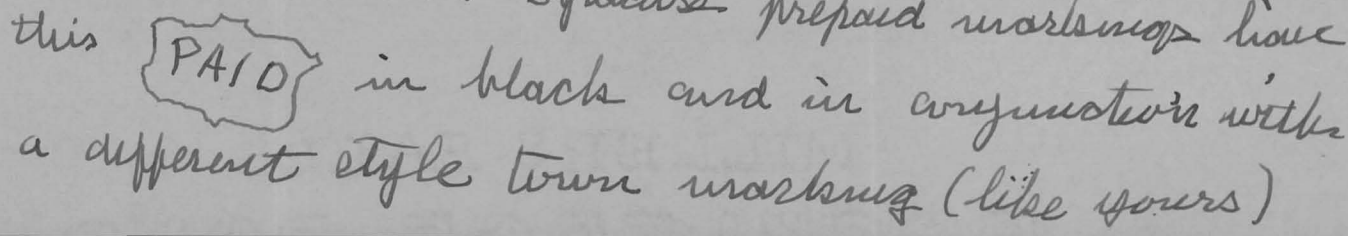 prepaid markings have
this PAID in black and in conjunction with
a different style town marking (like yours)